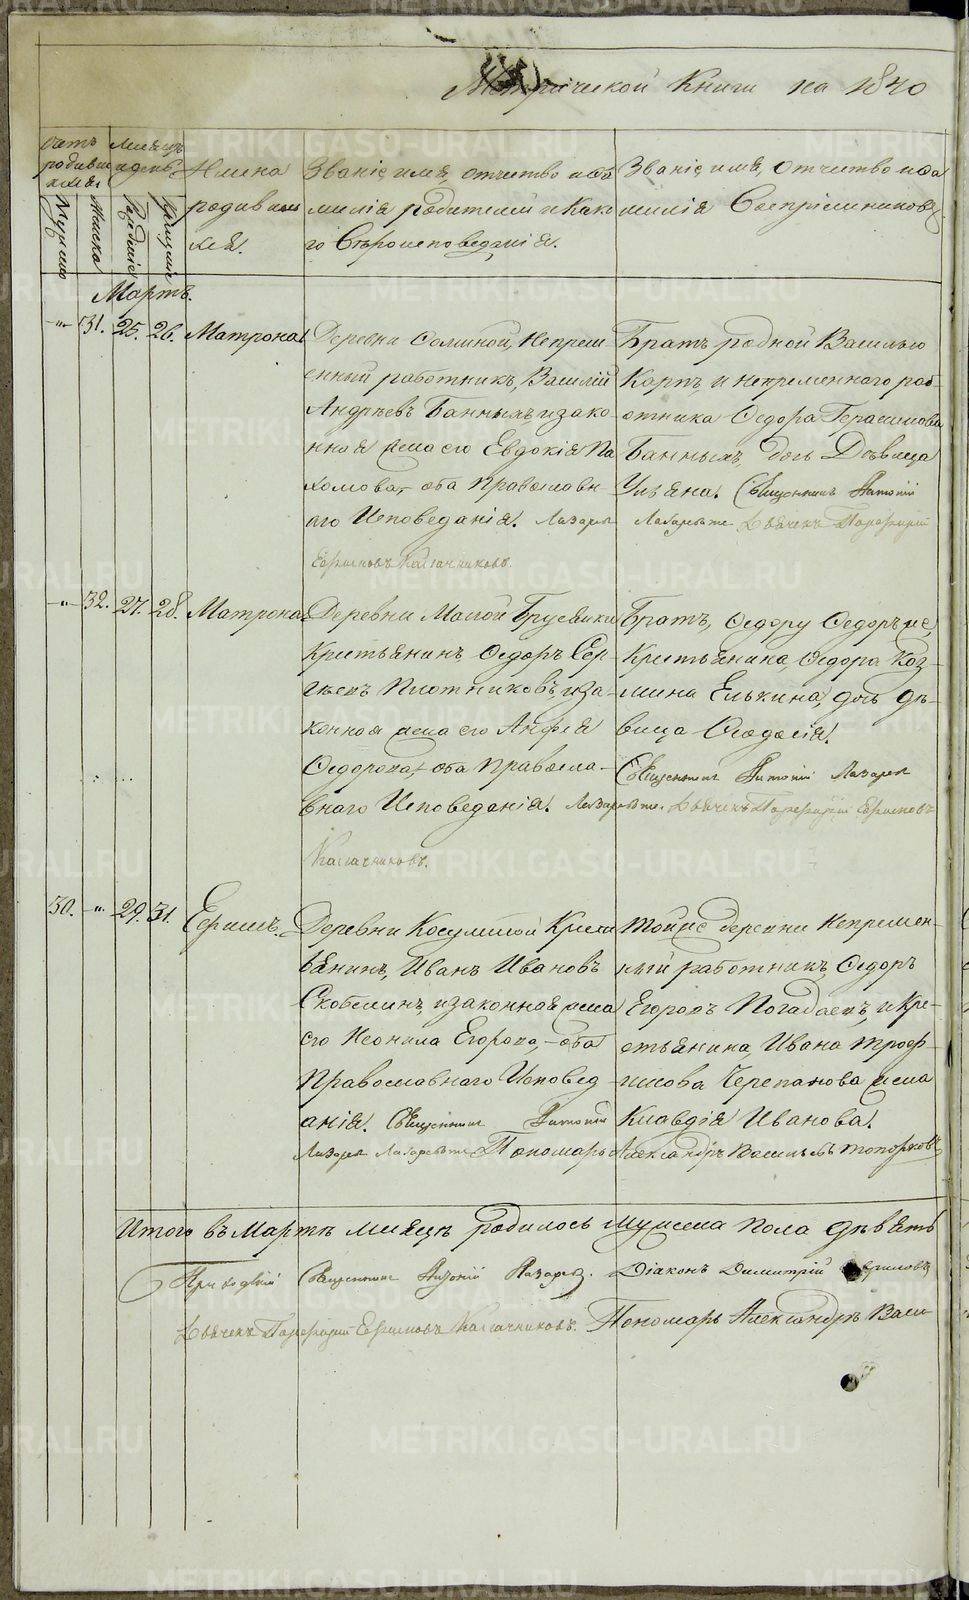 Метрической Книги на 1840
Счетъ родившихся
Месяцъ и день
Имена родившихся.
Званіе имя, отчество и фамилія родителей и какого Вѣроисповеданія.
Званіе имя, отчество и фамилія Воспріемниковъ.
Мужеска
Женска
Рожденія
Крещенія
Мартъ.
-"- 31. 25. 26. Матрона
Деревни Солиной, Непремѣнный работникъ, Василій
Андрѣевъ Банныхъ, и законная жена его Евдокія Пахомова, оба Православнаго Исповеданія.
Братъ родной Василью
Карпъ, и непременного работника Федора Герасимова
Банныхъ, дочь Дѣвица
Ульяна. Священникъ Антоній
Лазаревъ
Дьячекъ Порфирій
Ефимовъ Калачниковъ.
-"- 32. 27. 28. Матрона
Деревни Малой Брусянки
Крестьянинъ Федоръ Сергѣевъ Плотниковъ, и законная жена его Анфія
Федорова, оба Православнаго Исповеданія.
Братъ, Федору Федоръ же,
Крестьянина, Федора Козмина Елькина, дочь дѣвица Феодосія.
Священникъ Антоній Лазаревъ
Дьячекъ Порфирій Ефимовъ
Калачниковъ.
30. -"- 29. 31. Ефимъ.
Деревни Косулиной Крестьянинъ, Иванъ Ивановъ
Скобелинъ, и законная жена
его Неонила Егорова, - оба
Православнаго Исповеданія. Священникъ Антоній
Лазаревъ
Тойже деревни Непременный работникъ, Федоръ
Егоровъ Погадаевъ, и Крестьянина, Ивана Трофимова Черепанова жена
Клавдія Иванова.
Пономарь Александръ Васильевъ Топорковъ
Итого въ Мартѣ месяцѣ родилось мужеска пола девять
Приходскій Священникъ Антоній Лазаревъ. Діаконъ Димитрій
Дьячекъ Порфирій Ефимовъ Калачниковъ. Пономарь Александръ Васи
METRIKI.GASO-URAL.RU